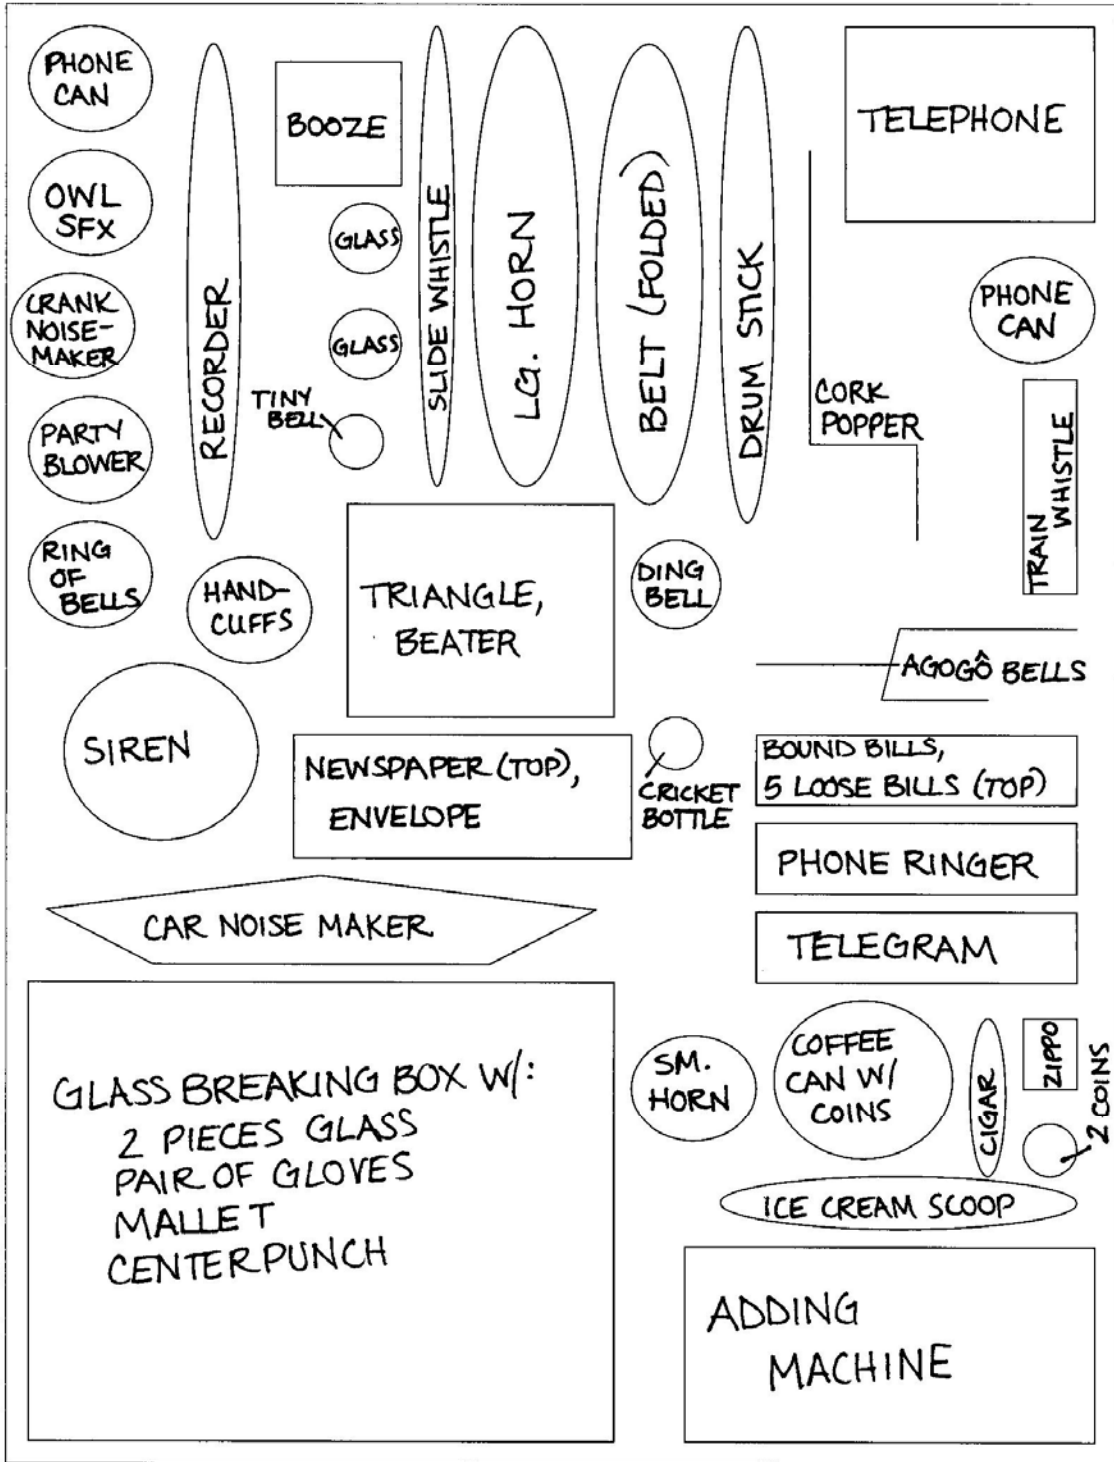 PHONE
CAN
OWL
SFX
CRANK
NOISE-
MAKER
PARTY
BLOWER
RING
OF
BELLS
RECORDER
BOOZE
GLASS
GLASS
TINY
BELL
SLIDE WHISTLE
LG. HORN
BELT (FOLDED)
DRUM STICK
TELEPHONE
PHONE
CAN
CORK
POPPER
TRAIN
WHISTLE
HAND-
CUFFS
TRIANGLE,
BEATER
DING
BELL
AGOGÔ BELLS
SIREN
NEWSPAPER (TOP),
ENVELOPE
CRICKET
BOTTLE
BOUND BILLS,
5 LOOSE BILLS (TOP)
PHONE RINGER
TELEGRAM
CAR NOISE MAKER
GLASS BREAKING BOX W/:
2 PIECES GLASS
PAIR OF GLOVES
MALLET
CENTERPUNCH
SM.
HORN
COFFEE
CAN W/
COINS
CIGAR
ZIPPO
2 COINS
ICE CREAM SCOOP
ADDING
MACHINE